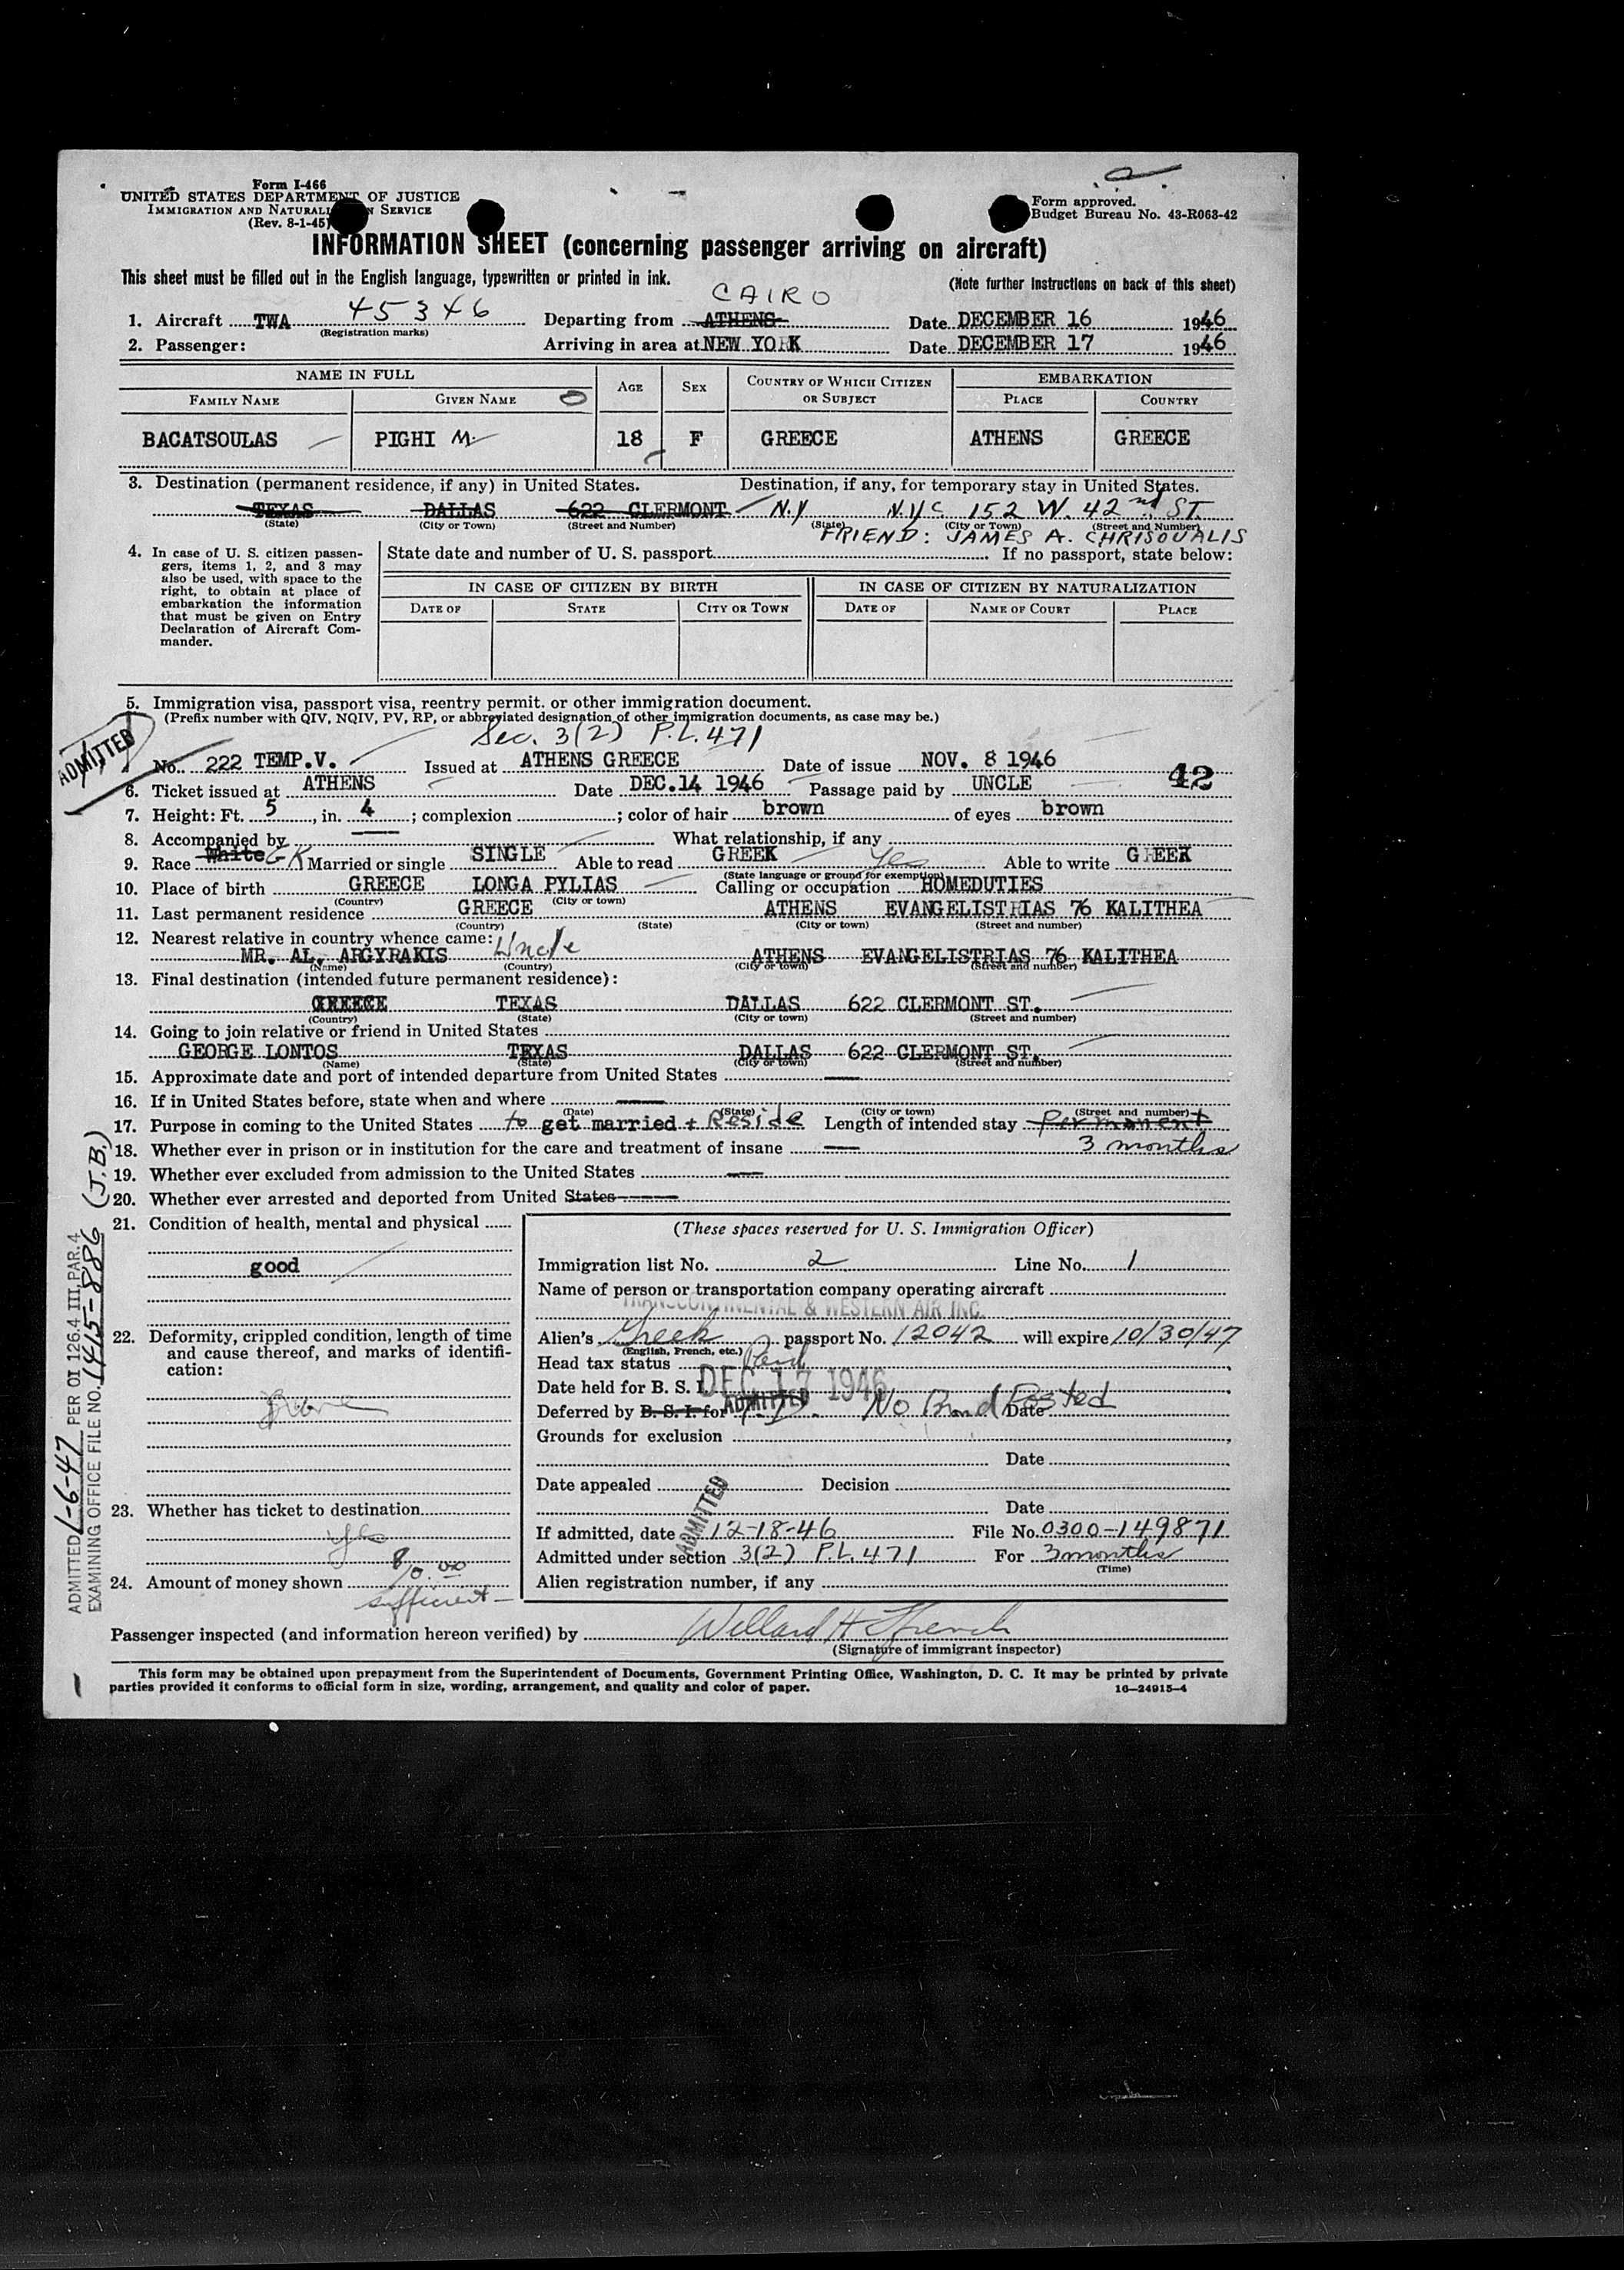 Form I-466
UNITED STATES DEPARTMENT OF JUSTICE
IMMIGRATION AND NATURALI N SERVICE
(Rev. 8-1-45)
Form approved.
Budget Bureau No. 43-R063-42
INFORMATION SHEET (concerning passenger arriving on aircraft)
This sheet must be filled out in the English language, typewritten or printed in ink.
(Note further instructions on back of this sheet)
CAIRO
1. Aircraft TWA 45346 Departing from ATHENS Date DECEMBER 16 1946
(Registration marks)
2. Passenger: Arriving in area at NEW YORK Date DECEMBER 17 1946
NAME IN FULL AGE SEX COUNTRY OF WHICH CITIZEN OR SUBJECT EMBARKATION
FAMILY NAME GIVEN NAME PLACE COUNTRY
BACATSOULAS PIGHI M. 18 F GREECE ATHENS GREECE
3. Destination (permanent residence, if any) in United States. Destination, if any, for temporary stay in United States.
TEXAS DALLAS 622 CLERMONT N.Y N.Y.C 152 W. 42nd ST.
(State) (City or Town) (Street and Number) (State) (City or Town) (Street and Number)
FRIEND: JAMES A. CHRISOUALIS
4. In case of U. S. citizen passen-
gers, items 1, 2, and 3 may
also be used, with space to the
right, to obtain at place of
embarkation the information
that must be given on Entry
Declaration of Aircraft Com-
mander.
State date and number of U. S. passport If no passport, state below:
IN CASE OF CITIZEN BY BIRTH IN CASE OF CITIZEN BY NATURALIZATION
DATE OF STATE CITY OR TOWN DATE OF NAME OF COURT PLACE
5. Immigration visa, passport visa, reentry permit. or other immigration document.
(Prefix number with QIV, NQIV, PV, RP, or abbreviated designation of other immigration documents, as case may be.)
Sec. 3(2) P.L. 471
ADMITTED
No. 222 TEMP.V. Issued at ATHENS GREECE Date of issue NOV. 8 1946
42
6. Ticket issued at ATHENS Date DEC.14 1946 Passage paid by UNCLE
7. Height: Ft. 5, in. 4; complexion ; color of hair brown of eyes brown
8. Accompanied by What relationship, if any
9. Race White GK Married or single SINGLE Able to read GREEK Yes Able to write GREEK
(State language or ground for exemption)
10. Place of birth GREECE LONGA PYLIAS Calling or occupation HOMEDUTIES
(Country) (City or town)
11. Last permanent residence GREECE ATHENS EVANGELISTRIAS 76 KALITHEA
(Country) (State) (City or town) (Street and number)
12. Nearest relative in country whence came: Uncle
MR. AL. ARGYRAKIS ATHENS EVANGELISTRIAS 76 KALITHEA
(Name) (Country) (City or town) (Street and number)
13. Final destination (intended future permanent residence):
GREECE TEXAS DALLAS 622 CLERMONT ST.
(Country) (State) (City or town) (Street and number)
14. Going to join relative or friend in United States
GEORGE LONTOS TEXAS DALLAS 622 CLERMONT ST.
(Name) (State) (City or town) (Street and number)
15. Approximate date and port of intended departure from United States
16. If in United States before, state when and where
(Date) (State) (City or town) (Street and number)
17. Purpose in coming to the United States to get married + Reside Length of intended stay Permanent
3 months
18. Whether ever in prison or in institution for the care and treatment of insane
19. Whether ever excluded from admission to the United States
20. Whether ever arrested and deported from United States
21. Condition of health, mental and physical
good
22. Deformity, crippled condition, length of time
and cause thereof, and marks of identifi-
cation:
None
23. Whether has ticket to destination
yes
24. Amount of money shown
sufficient
(These spaces reserved for U. S. Immigration Officer)
Immigration list No. 2 Line No. 1
Name of person or transportation company operating aircraft
TRANSCONTINENTAL & WESTERN AIR INC.
Alien's Greek passport No. 12042 will expire 10/30/47
(English, French, etc.)
Head tax status Paid
Date held for B. S. I. DEC 17 1946
Deferred by B. S. I. for ADMITTED No Bond Posted Date
Grounds for exclusion
Date
Date appealed Decision
Date
ADMITTED
If admitted, date 12-18-46 File No. 0300-149871
Admitted under section 3(2) P.L. 471 For 3 months
(Time)
Alien registration number, if any
Passenger inspected (and information hereon verified) by Willard H. French
(Signature of immigrant inspector)
This form may be obtained upon prepayment from the Superintendent of Documents, Government Printing Office, Washington, D. C. It may be printed by private
parties provided it conforms to official form in size, wording, arrangement, and quality and color of paper.
16—24915-4
ADMITTED 1-6-47 PER OI 126.4 III, PAR. 4
EXAMINING OFFICE FILE NO. 1415-886 (J.B.)